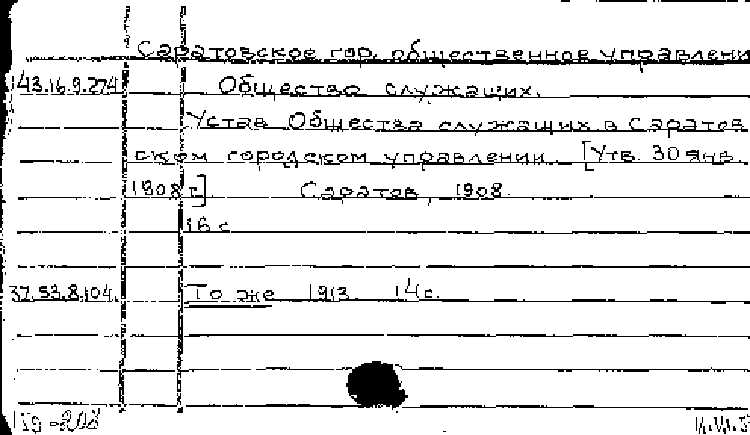 Саратовское гор. общественное управлени
143.16.9.274 Общество служащих.
Устав Общества служащих в Саратов
ском городском управлении. [Утв. 30 янв.
1908 г.] Саратов, 1908.
16 с.
37.53.8.104. То же 1913. 14 с.